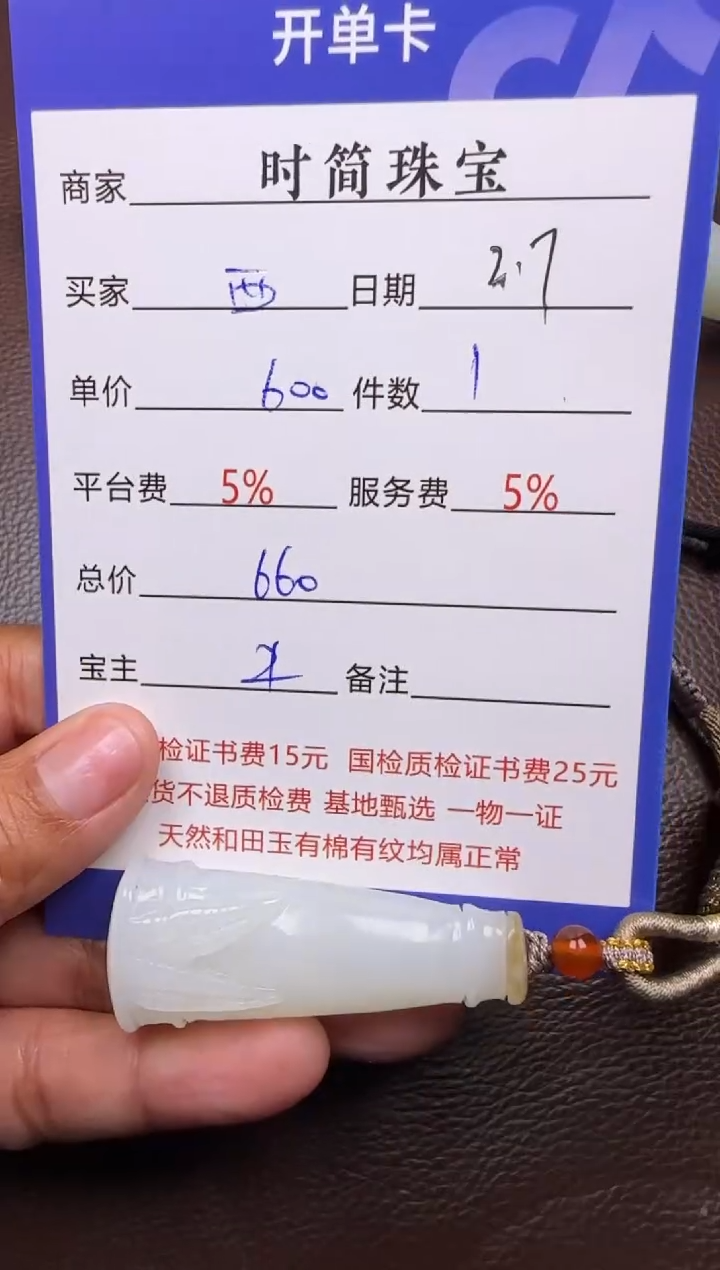 开单卡
商家 时简珠宝
买家 西 日期 2.7
单价 600 件数 1
平台费 5% 服务费 5%
总价 660
宝主 备注
检证书费15元 国检质检证书费25元
货不退质检费 基地甄选 一物一证
天然和田玉有棉有纹均属正常